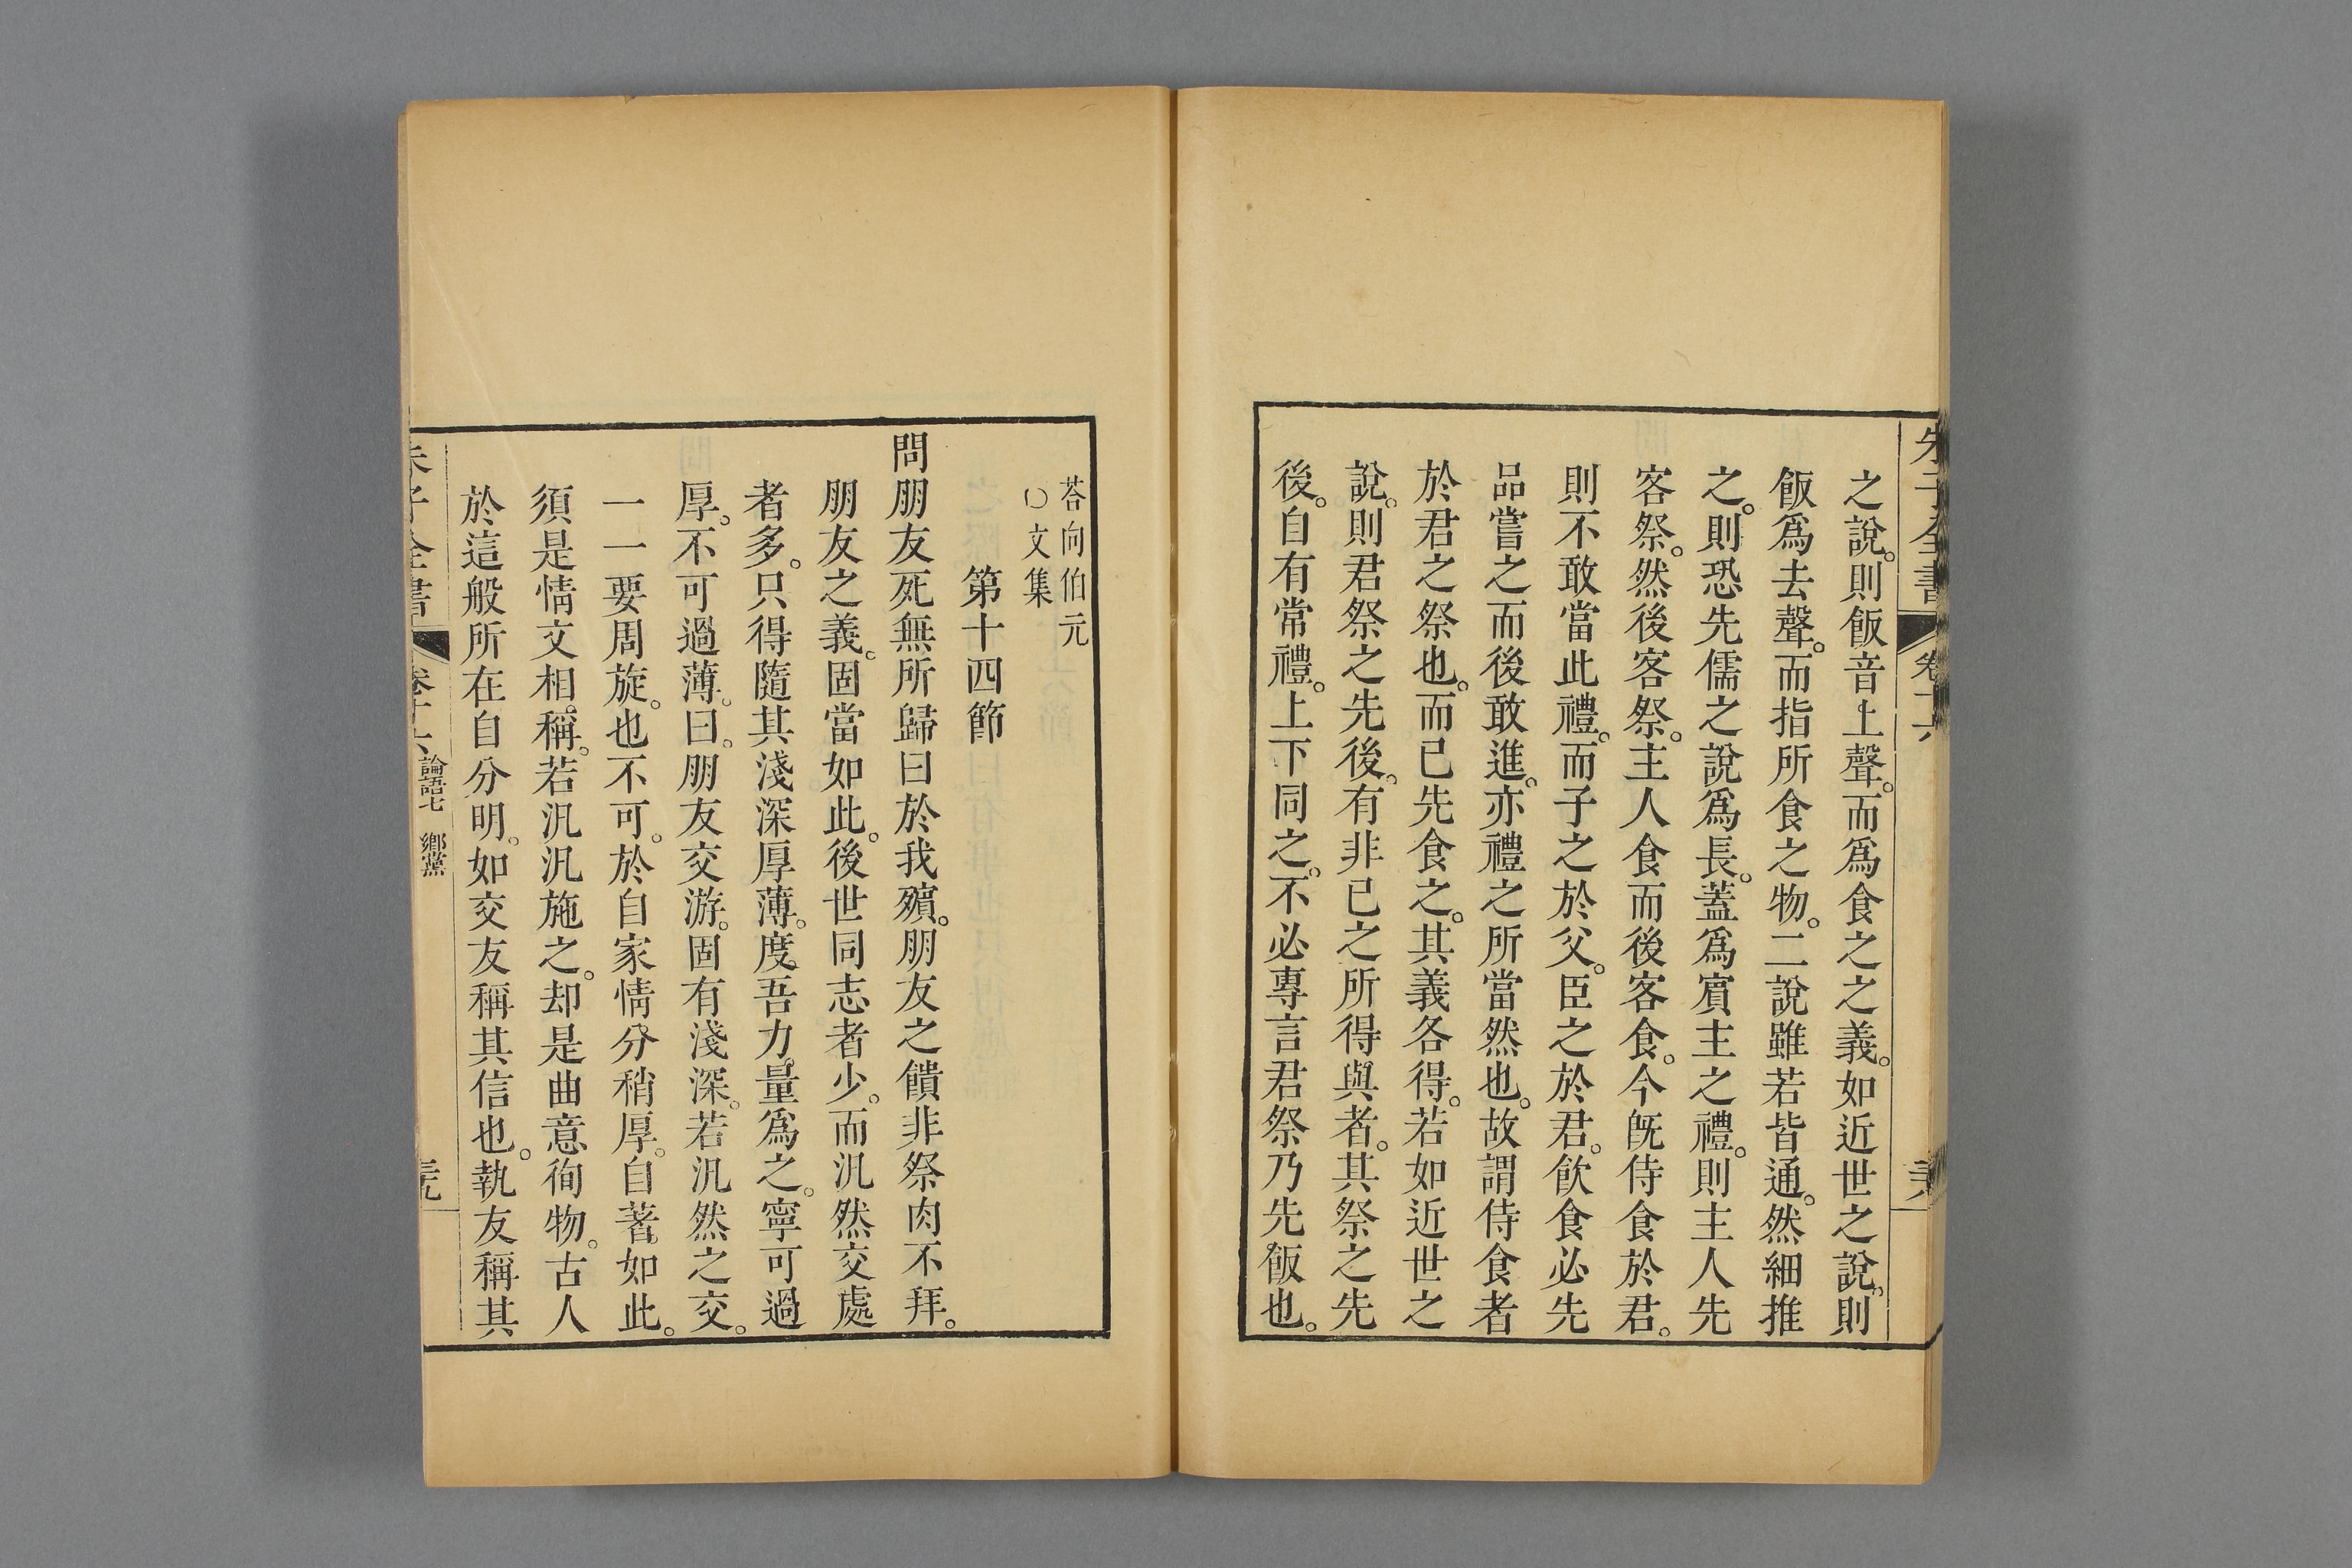 朱子全書 卷十六
之說。則飯音上聲。而爲食之之義。如近世之說。則
飯爲去聲。而指所食之物。二說雖若皆通。然細推
之。則恐先儒之說爲長。蓋爲賓主之禮。則主人先
客祭。然後客祭。主人食而後客食。今旣侍食於君。
則不敢當此禮。而子之於父。臣之於君。飮食必先
品嘗之而後敢進。亦禮之所當然也。故謂侍食者
於君之祭也。而已先食之。其義各得。若如近世之
說。則君祭之先後。有非已之所得與者。其祭之先
後。自有常禮。上下同之。不必專言君祭乃先飯也。
荅向伯元
○文集
第十四節
問朋友死無所歸曰於我殯。朋友之饋非祭肉不拜。
朋友之義。固當如此。後世同志者少。而汎然交處
者多。只得隨其淺深厚薄。度吾力。量爲之。寧可過
厚。不可過薄。曰。朋友交游。固有淺深。若汎然之交。
一一要周旋。也不可。於自家情分稍厚。自著如此。
須是情文相稱。若汎汎施之。却是曲意徇物。古人
於這般所在自分明。如交友稱其信也。執友稱其
朱子全書 卷十六 論語七 鄉黨